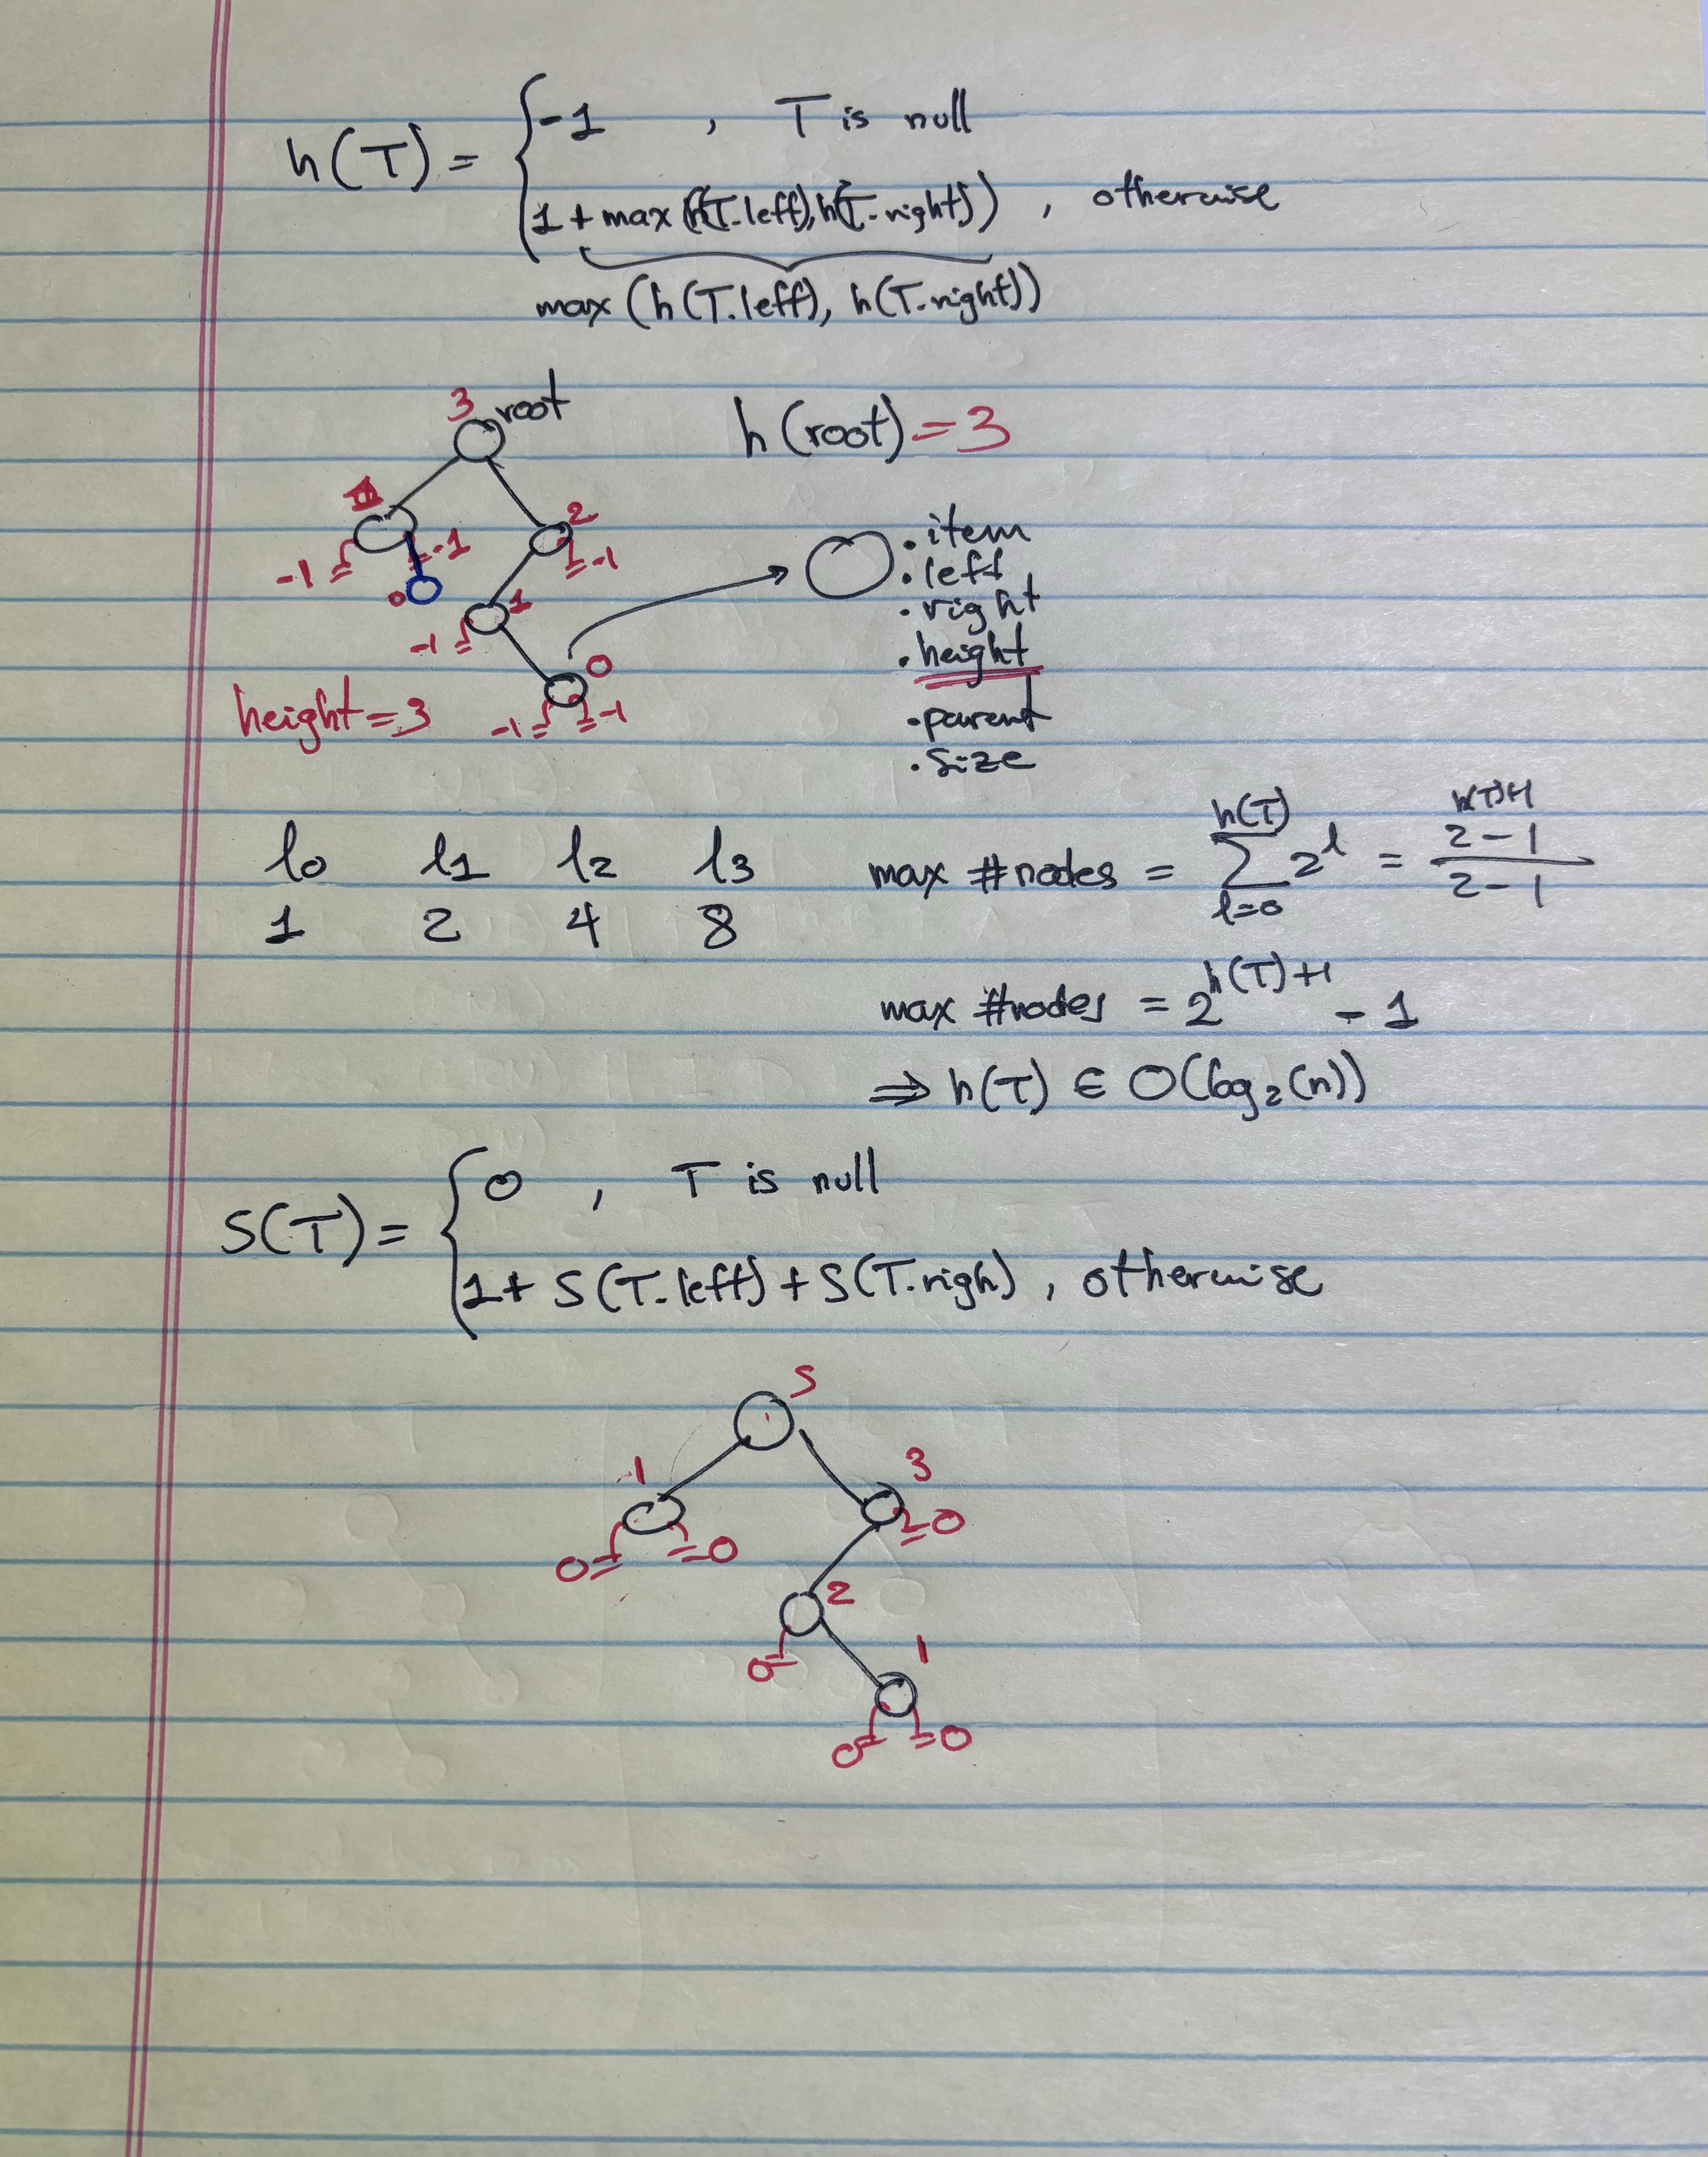 h(T) = { -1 , T is null
1 + max(h(T.left), h(T.right)) , otherwise
max (h(T.left), h(T.right))
3 root
h(root) = 3
2
-1 -1 -1
0
1
-1
0
-1 -1
height = 3
. item
. left
. right
. height
. parent
. size
l0 l1 l2 l3
1 2 4 8
max #nodes = h(T) ∑ l=0 2^l = 2^h(T)+1 - 1 / 2 - 1
max #nodes = 2^h(T)+1 - 1
⇒ h(T) ∈ O(log₂(n))
S(T) = { 0 , T is null
1 + S(T.left) + S(T.righ) , otherwise
5
1 3
0 0 0
2
0
1
0 0